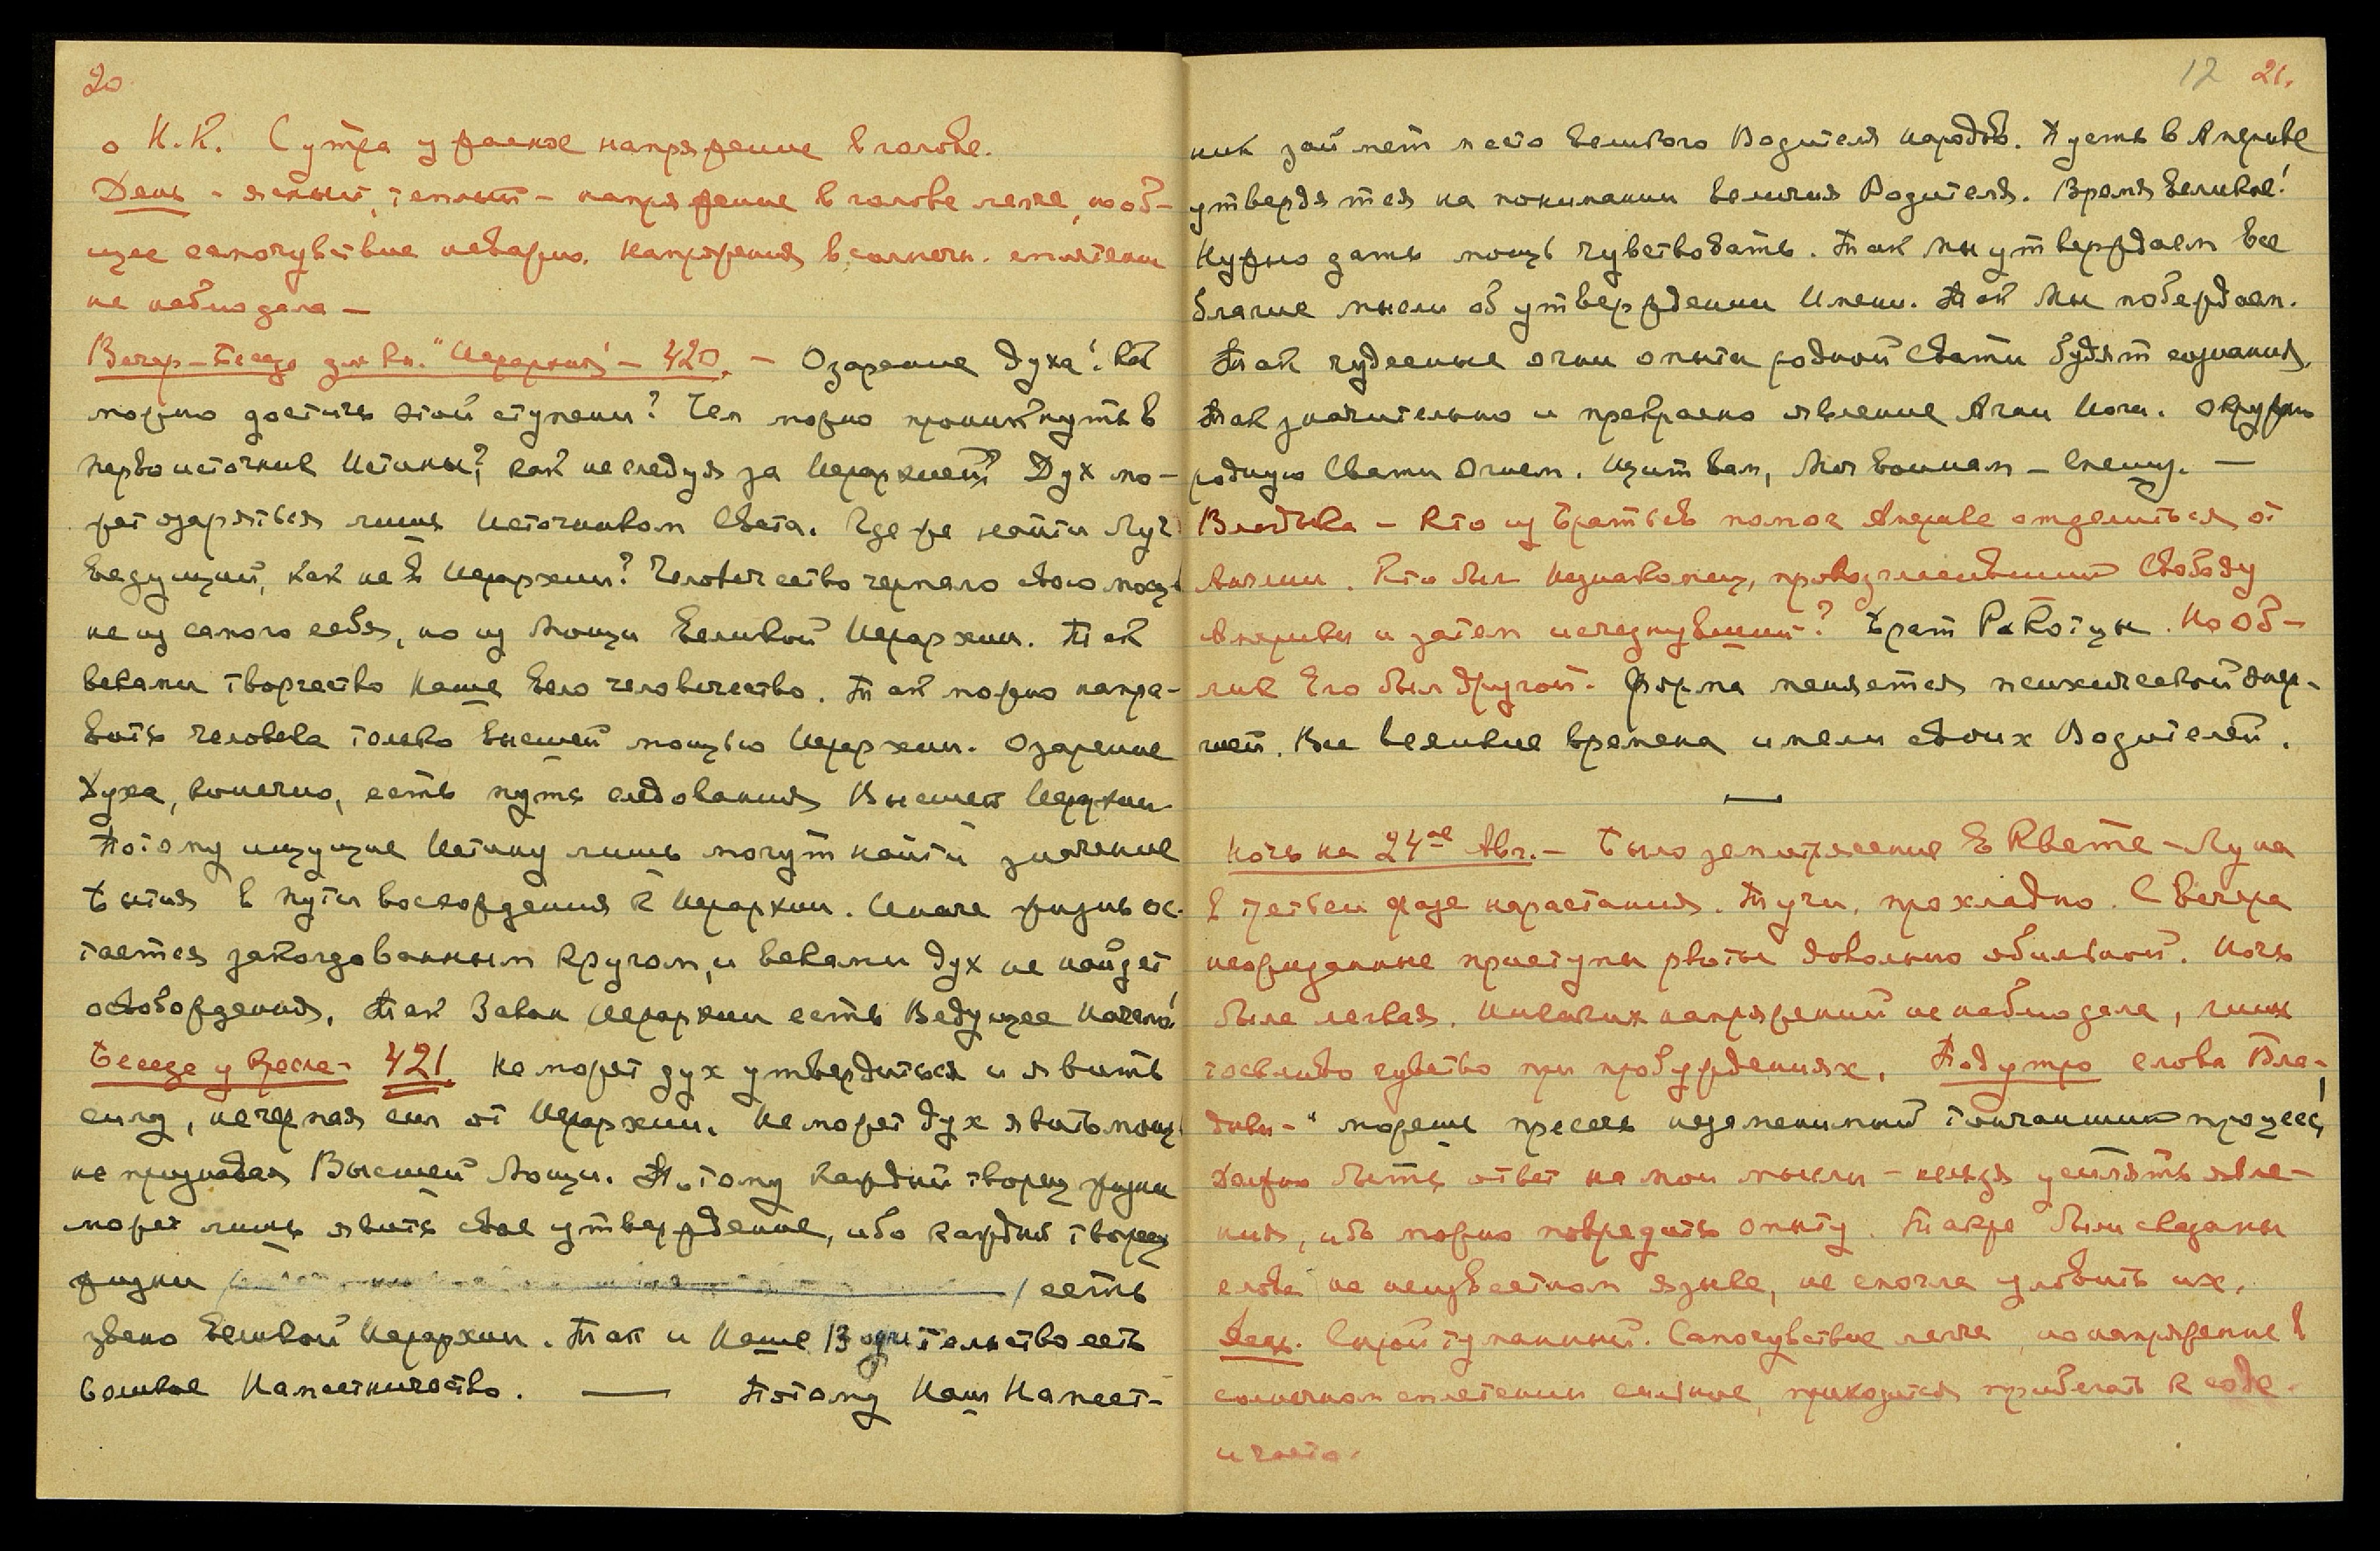 20
о Н.К. С утра ужасное напряжение в голове.
День - ясный, теплый - напряжение в голове легче, но об-
щее самочувствие неважно. Напряжения в солнечн. сплетении
не наблюдала —
Вечер - Беседа для кн. "Иерархия" - 420. — Озарение духа! Как
можно достичь этой ступени? Чем можно проникнуть в
Первоисточник Истины? как не следуя за Иерархией? Дух мо-
жет озаряться лишь Источником Света. Где же найти Луч
Ведущий, как не в Иерархии? Человечество черпало свою мощь
не из самого себя, но из Мощи Великой Иерархии. Так
веками творчество Наше вело человечество. Так можно напра-
вить человека только высшей мощью Иерархии. Озарение
Духа, конечно, есть путь следования Высшей Иерархии.
Потому ищущие Истину лишь могут найти значение
Бытия в пути восхождения к Иерархии. Иначе жизнь ос-
тается заколдованным кругом, и веками дух не найдет
освобождения. Так Закон Иерархии есть Ведущее Начало!
Беседа у Кресла - 421 Не может дух утвердиться и явить
силу, не черпая сил от Иерархии. Не может дух явить мощь
не признавая Высшей Мощи. Потому каждый творец жизни
может лишь явить свое утверждение, ибо каждый творец
жизни / / есть
звено Великой Иерархии. Так и Наше Водительство есть
великое Наместничество. — Потому Наш Намест-
12 21.
ник займет место великого Водителя народов. Пусть в Америке
утвердятся на понимании величия Водителя. Время великое!
Нужно дать мощь чувствовать. Так мы утверждаем все
благие мысли об утверждении Имени. Так Мы побеждаем.
Так чудесные огни опыта родной Свати будят сознания.
Так значительно и прекрасно явление Агни Йоги. Окружи
родную Свати Огнем. Щит вам, Мои воинам - Спешу. —
Владыка - Кто из Братьев помог Америке отделиться от
Англии. Кто был Незнакомец, провозгласивший Свободу
Америки и затем исчезнувший? Брат Ракоцы. Но об-
лик Его был другой. Форма меняется психической энер-
гией. Все великие времена имели своих Водителей.
—
Ночь на 24ое Авг. - Было землетрясение в Кветте - Луна
в третьей фазе нарастания. Тучи, прохладно. С вечера
неожиданные приступы рвоты довольно обильной. Ночь
была легкая. Никаких напряжений не наблюдала, лишь
тоскливо чувство при пробуждениях. Под утро слова Вла-
дыки - "можешь пресечь незаменимый тончайший процесс"
Должно быть ответ на мои мысли - нельзя усилять явле-
ния, ибо можно повредить опыту. Также были сказаны
слова на неизвестном языке, не смогла уловить их.
День. Сырой туманный. Самочувствие легче, но напряжение в
солнечном сплетении сильное, приходится прибегать к соде.
и часто.